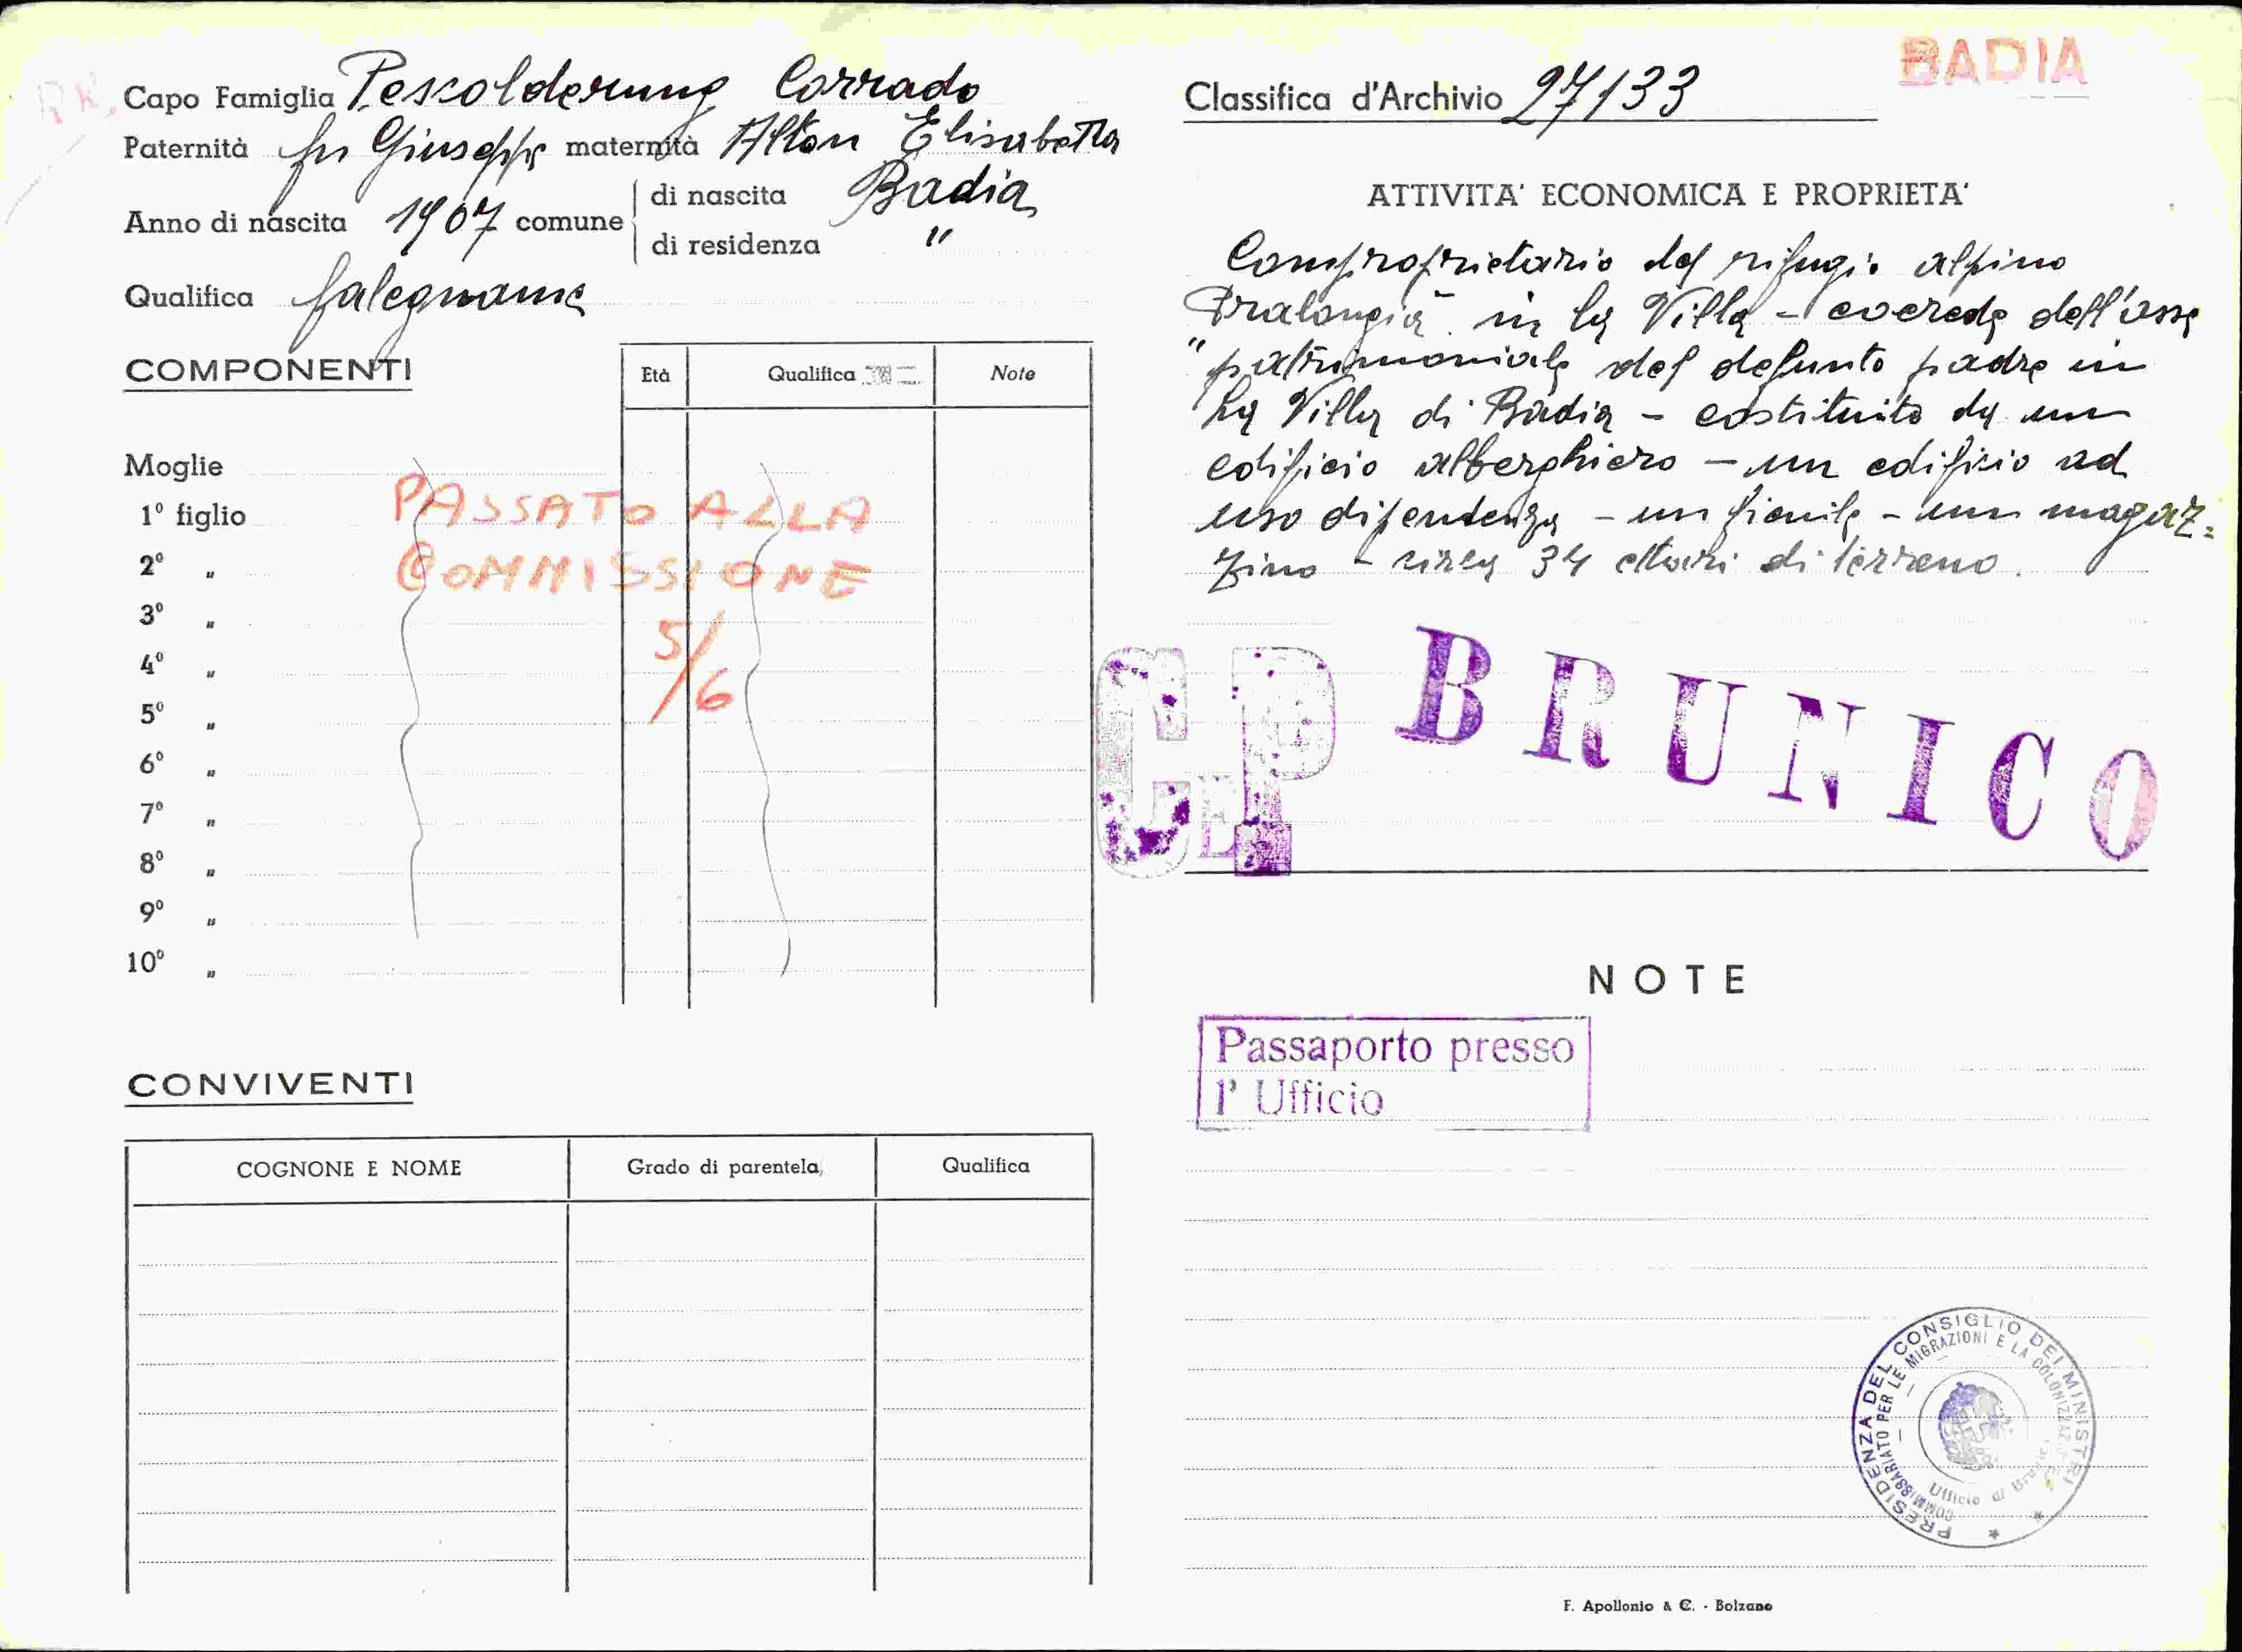 RK.
Capo Famiglia Pescolderung Corrado
Paternità fu Giuseppe maternità Alton Elisabetta
Anno di nascita 1907 comune di nascita Badia
di residenza "
Qualifica falegname
COMPONENTI
Età Qualifica Note
Moglie
1º figlio
2º "
3º "
4º "
5º "
6º "
7º "
8º "
9º "
10º "
PASSATO ALLA
COMMISSIONE
5/6
CONVIVENTI
COGNONE E NOME Grado di parentela Qualifica
BADIA
Classifica d'Archivio 27/133
ATTIVITA' ECONOMICA E PROPRIETA'
Comproprietario del rifugio alpino
"Pralongià" in La Villa - coerede dell'asse
patrimoniale del defunto padre in
La Villa di Badia - costituito da un
edificio alberghiero - un edificio ad
uso dipendenza - un fienile - un magaz=
zino - circa 34 ettari di terreno.
CP BRUNICO
NOTE
Passaporto presso
l' Ufficio
PRESIDENZA DEL CONSIGLIO DEI MINISTRI
COMMISSARIATO PER LE MIGRAZIONI E LA COLONIZZAZIONE
Ufficio di Brunico
F. Apollonio & C. - Bolzano